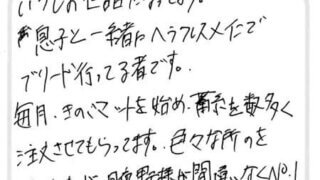 いつもお世話になります。
息子と一緒にヘラクレスメインで
ブリード行ってる者です。
毎月、きのこマットを始め、菌糸を数多く
注文させてもらってます。色々な所のを
間違いなくNo.1